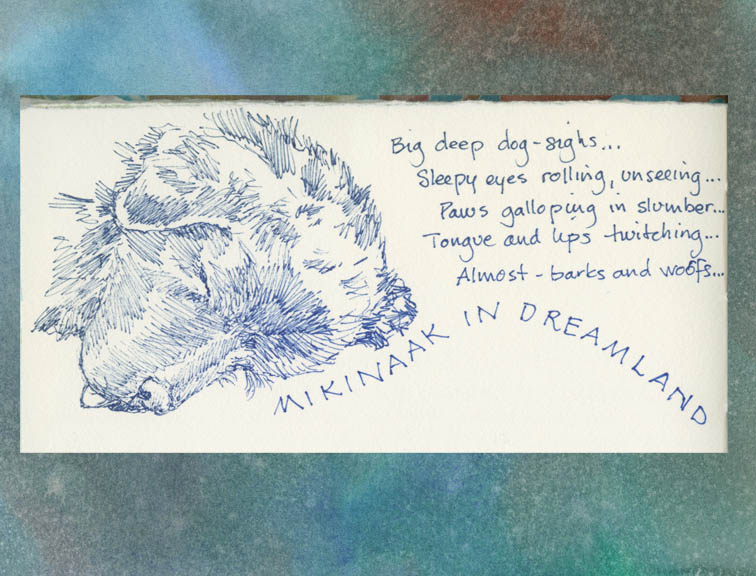 Big deep dog-sighs...
Sleepy eyes rolling, unseeing...
Paws galloping in slumber...
Tongue and lips twitching...
Almost-barks and woofs...
MIKINAAK IN DREAMLAND